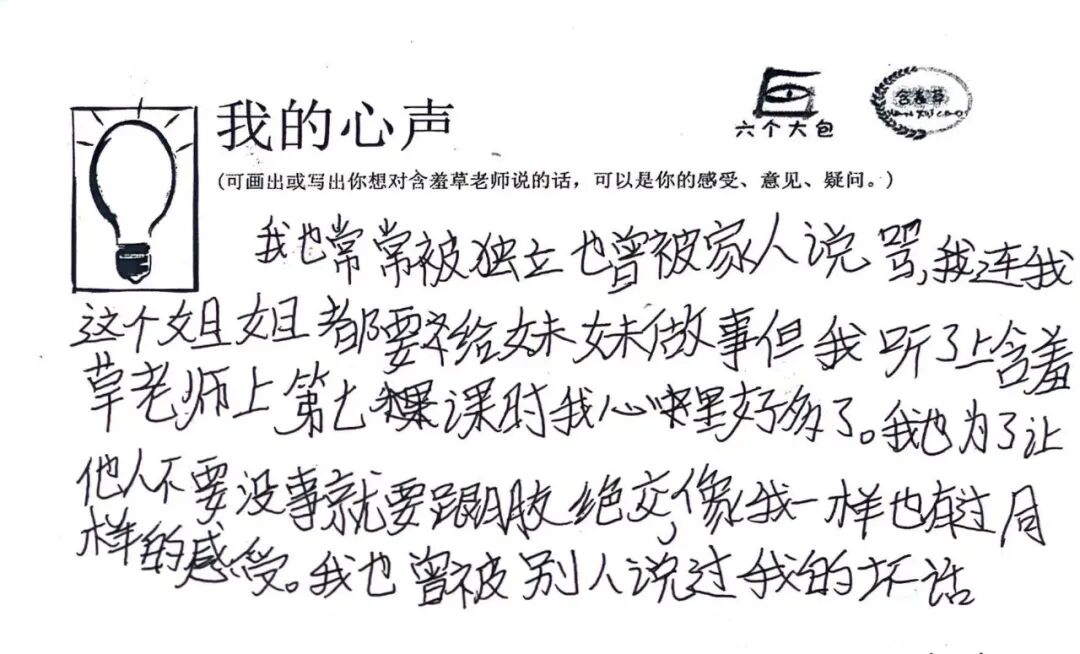 我的心声
六个大包
含羞草
(可画出或写出你想对含羞草老师说的话，可以是你的感受、意见、疑问。)
我也常常被独立也曾被家人说骂,我连我
这个姐姐都要给妹妹做事但我听了上含羞
草老师上第七课课时我心里好多了。我也为了让
他人不要没事就要跟朋友绝交,像我一样也有过同
样的感受。我也曾被别人说过我的坏话